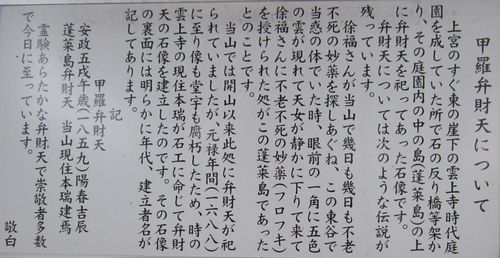 甲羅弁財天について
上宮のすぐ東の崖下の雲上寺時代庭
園を成していた所で石の反り橋等架か
り、その庭園内の中の島(蓬莱島)の上
に弁財天を祀ってあった石像です。
弁財天については次のような伝説が
残っています。
徐福さんが当山で幾日も幾日も不老
不死の妙薬を探しあぐね、この東谷で
当惑の体でいた時、眼前の一角に五色
の雲が現れて天女が静かに下りて来て
徐福さんに不老不死の妙薬(フロフキ)
を授けられた処がこの蓬莱島であった
とのことです。
当山では開山以来此処に弁財天が祀
られていましたが、元禄年間(一六八八)
に至り像も堂宇も腐朽したため、時の
雲上寺の現住本瑞が石工に命じて弁財
天の石像を建立したのです。その石像
の裏面には明らかに年代、建立者名が
記してあります。
記
甲羅弁財天
安政五戌午歳(一八五九)陽春吉辰
蓬莱島弁財天 当山現住本瑞建焉
霊験あらたかな弁財天で崇敬者多数
で今日に至っています。
敬白